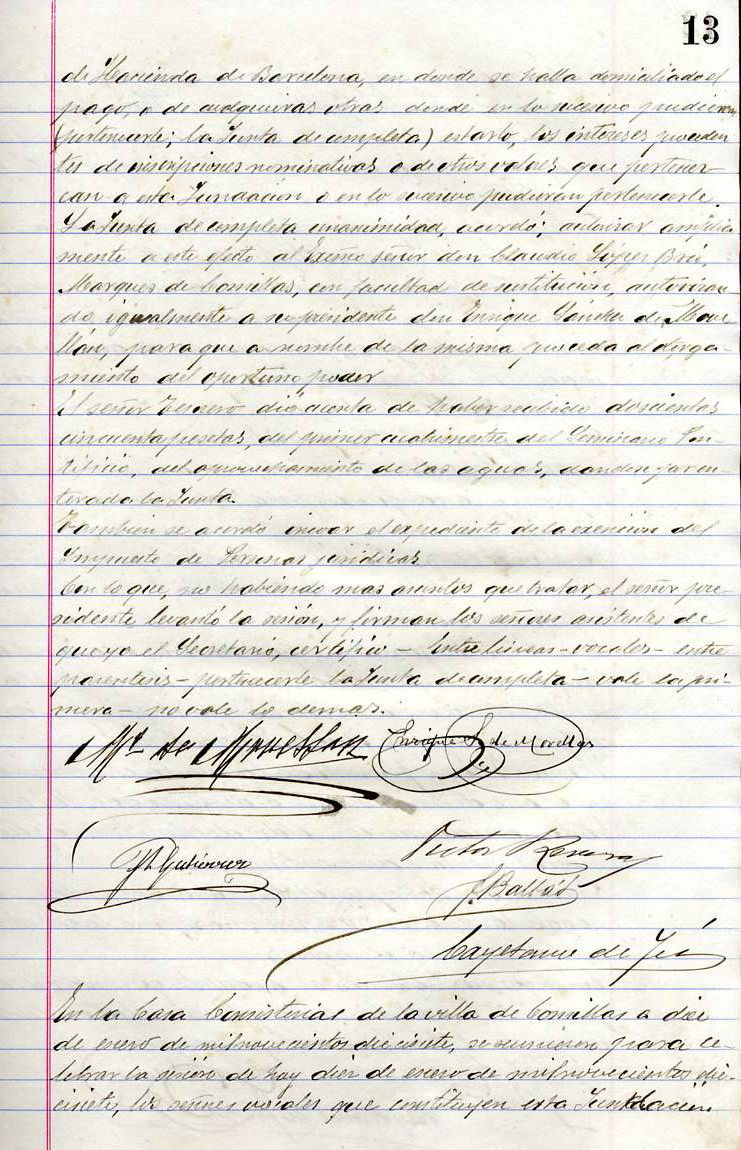 13
de Hacienda de Barcelona, en donde se halla domiciliado el
pago, o de cualquiera otras donde en lo sucesivo pudieran
(pertenecerle; la Junta de completa) estarlo, los intereses proceden
tes de inscripciones nominativas o de otros valores que pertenez
can a esta Fundación o en lo sucesivo pudieran pertenecerle.
La Junta de completa unanimidad, acordó; autorizar amplia
mente a este efecto al Excmo señor don Claudio López Brú,
Marques de Comillas, con facultad de sustitución, autorizan
do igualmente a su presidente don Enrique Sánchez de Move
llán, para que a nombre de la misma proceda al otorga-
miento del oportuno poder
El señor Tesorero dió cuenta de haber recibido doscientas
cincuenta pesetas, del primer cuatrimestre del Seminario Pon-
tificio, del aprovechamiento de las aguas, dandose por en-
terada la Junta.
También se acordó incoar el expediente de la exención del
Impuesto de Personas jurídicas
Con lo que, no habiendo mas asuntos que tratar, el señor pre-
sidente levantó la sesión, y firman los señores asistentes de
que yo el Secretario, certifico - Entre lineas - vocales - entre
parentesis - pertenecerle la Junta de completa - vale la pri-
mera - no vale lo demas.
Ms. de Movellan Enrique S. de Movellan
Gutiérrez
Victor
Cayetano de
En la Casa Consistorial de la villa de Comillas a diez
de enero de mil novecientos diecisiete, se reunieron para ce-
lebrar la sesión de hoy diez de enero de mil novecientos die-
cisiete, los señores vocales que constituyen esta Fundación